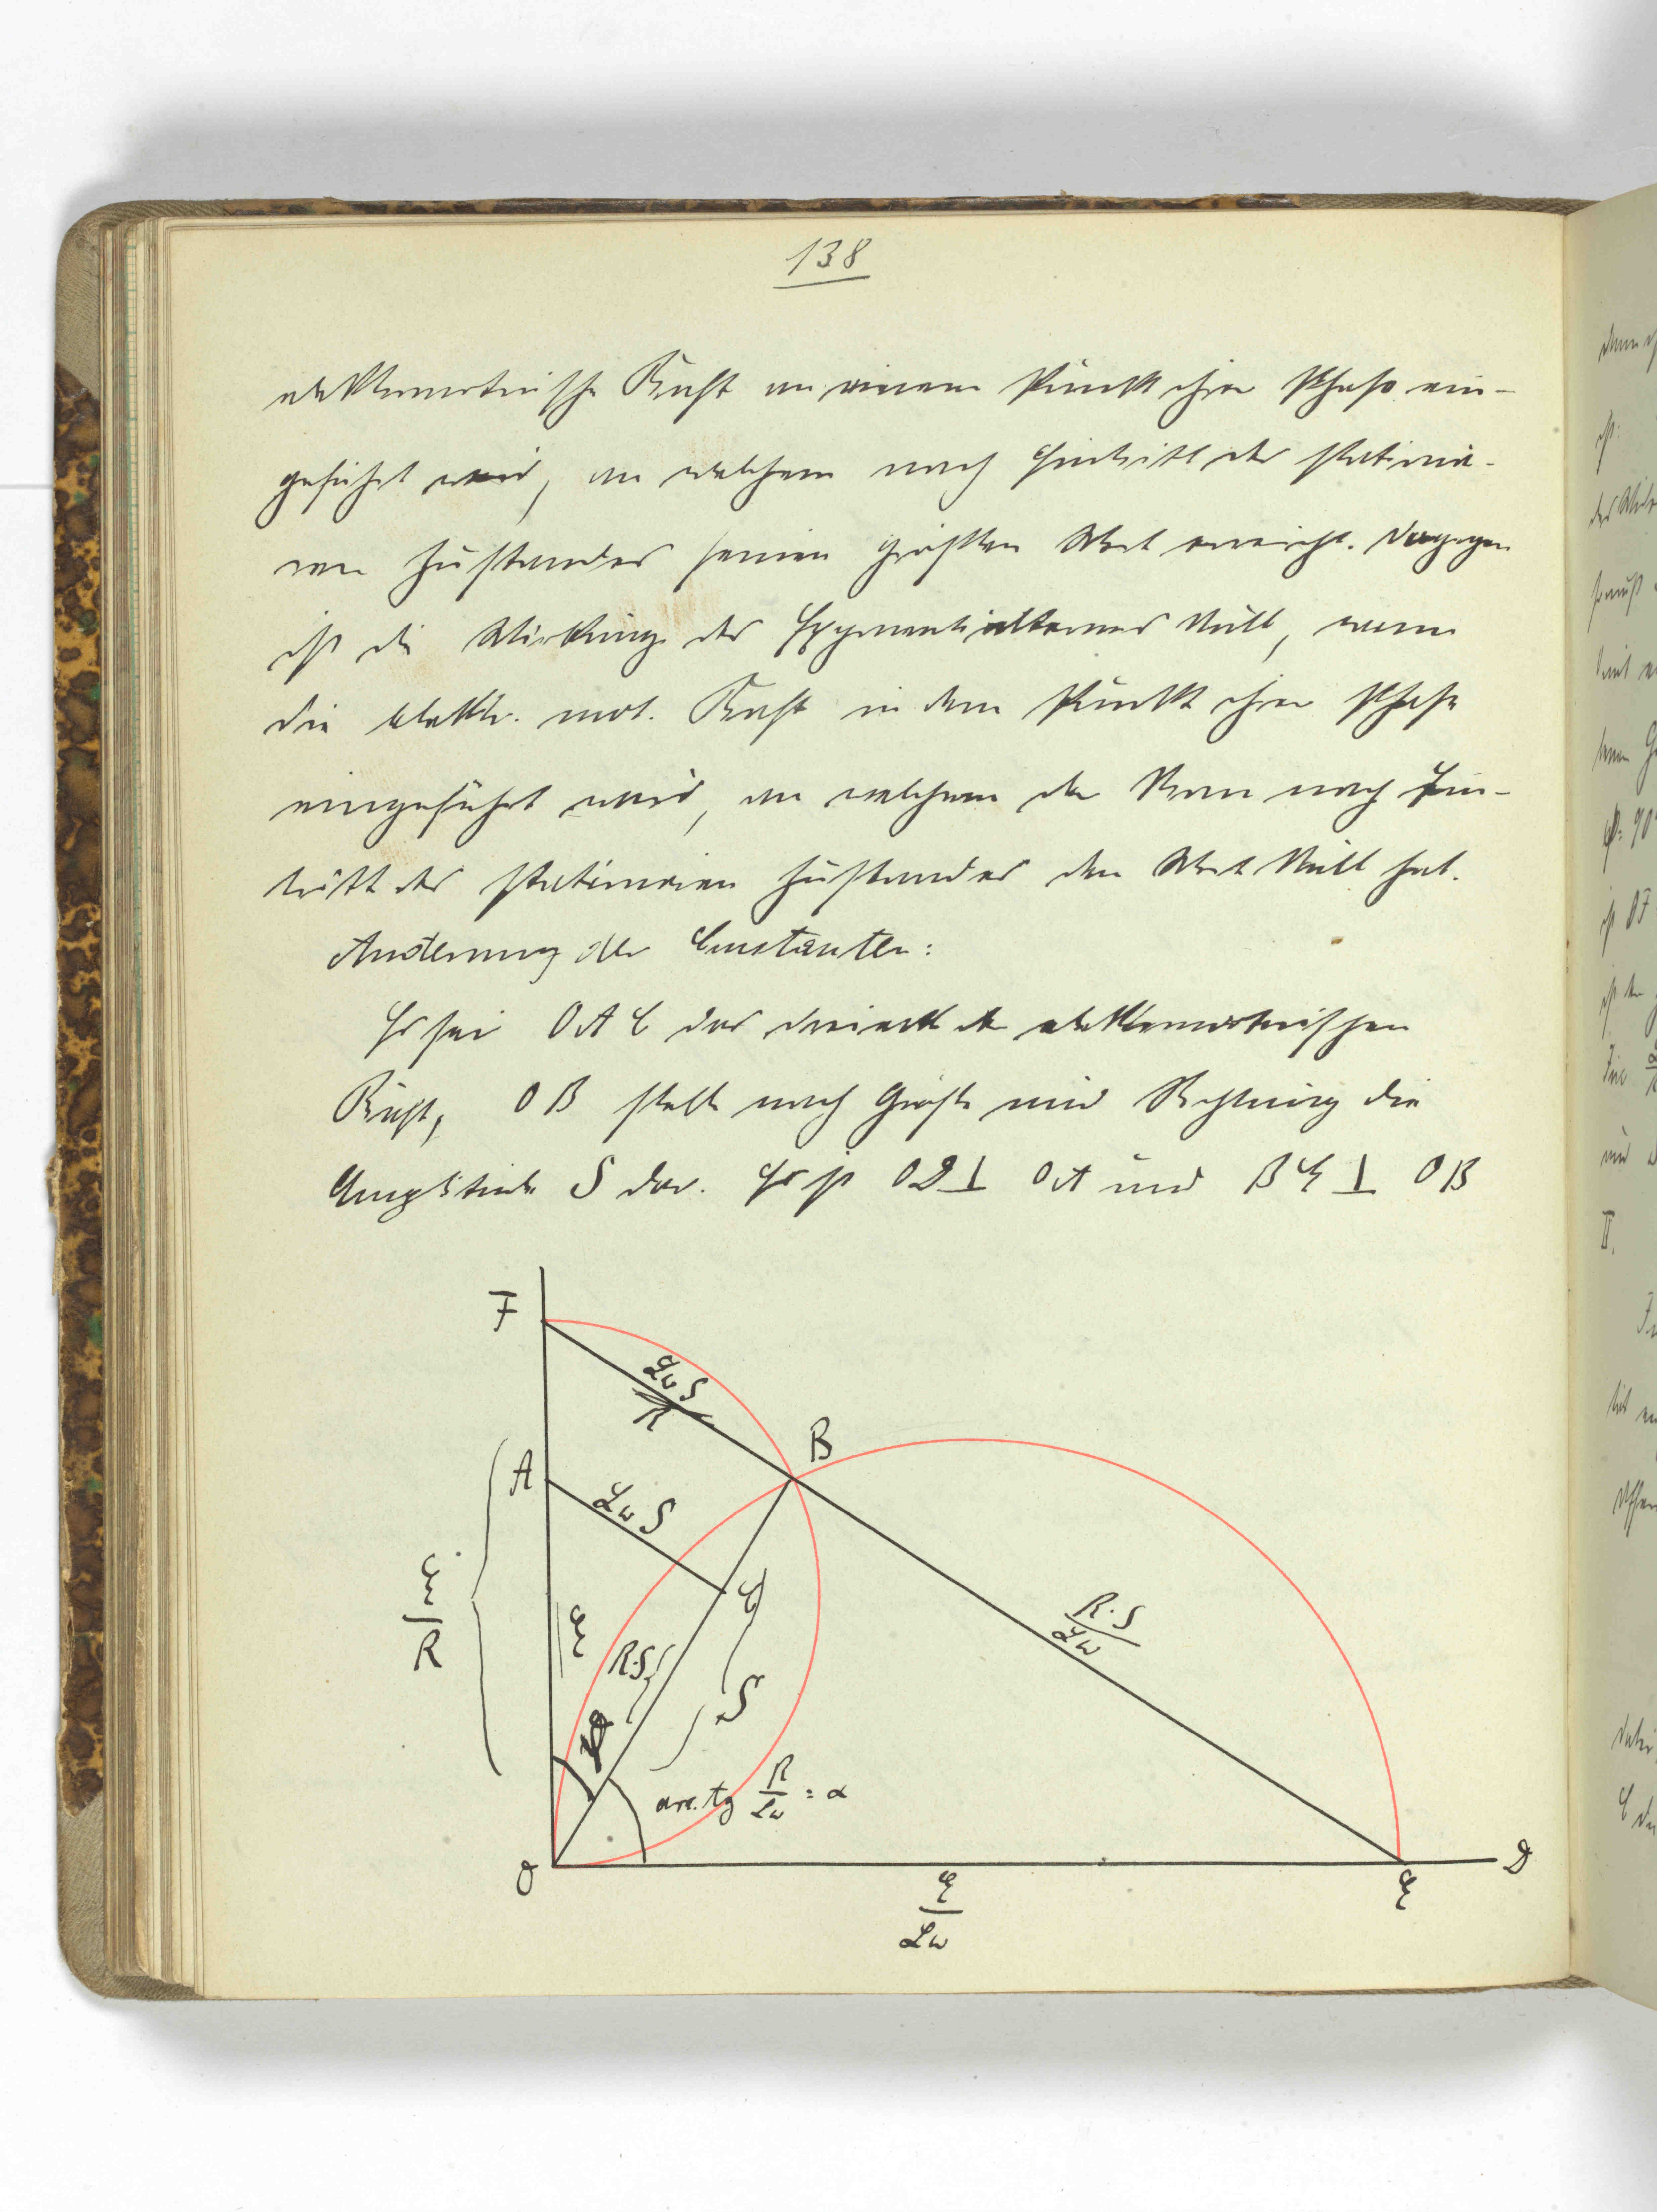 138
elektromotorische Kraft an einem Punkt ihrer Phase ein-
geführt wird, an welchem nach Eintritt des stationä-
ren Zustandes seinen größten Wert erreicht. Dagegen
ist die Wirkung des Exponentialtermes Null, wenn
die elektr. mot. Kraft in dem Punkt ihrer Phase
eingeführt wird, an welchem der Strom nach Ein-
tritt des stationären Zustandes den Wert Null hat.
Änderung der Constanten:
Es sei OAC das Dreieck der elektromotorischen
Kraft, OB stellt nach Größe und Richtung die
Amplitude S dar. Es ist OD ⊥ OA und BE ⊥ OB
F
LωS
R
B
A
LωS
E
R
E
C
R.S
R.S
Lω
S
φ
arc. tg R/Lω = α
O
E
D
E
Lω